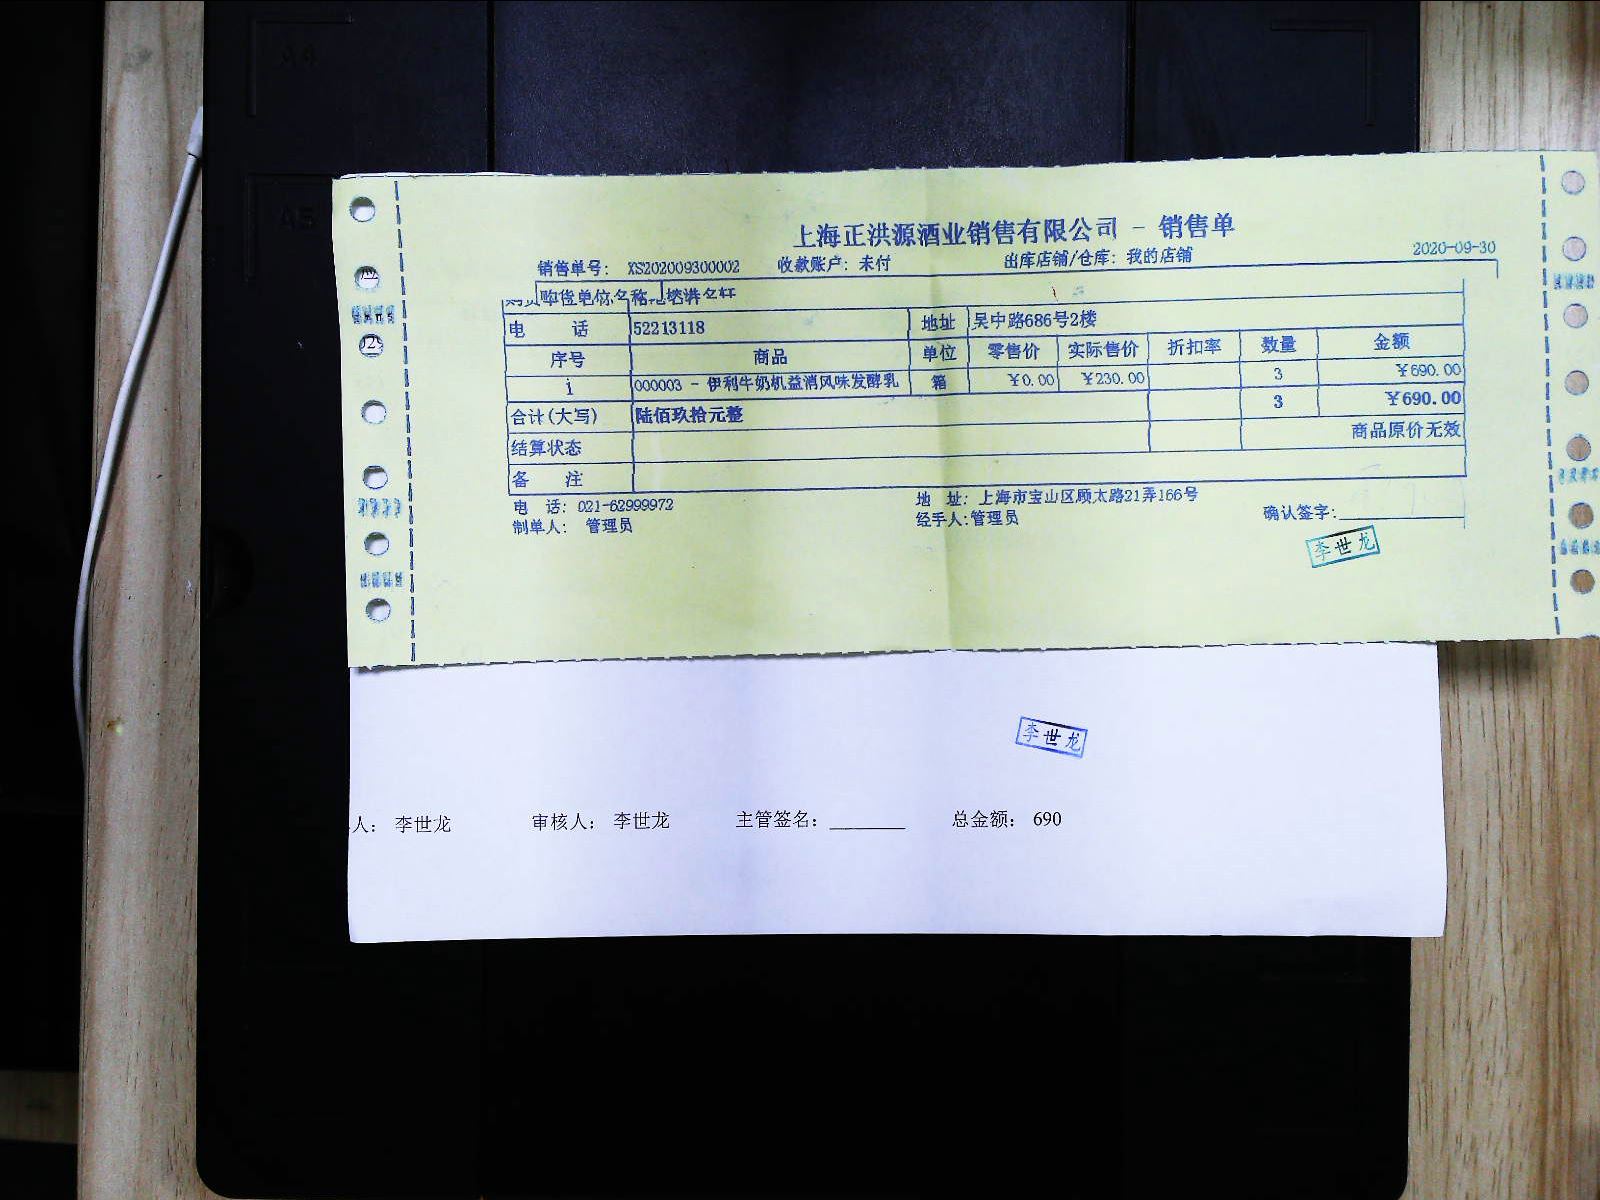 A4
A5
上海正洪源酒业销售有限公司 - 销售单
销售单号: XS202009300002 收款账户: 未付 出库店铺/仓库: 我的店铺 2020-09-30
购货单位名称
电 话 52213118 地址 吴中路686号2楼
序号 商品 单位 零售价 实际售价 折扣率 数量 金额
1 000003 - 伊利牛奶机益消风味发酵乳 箱 ¥0.00 ¥230.00 3 ¥690.00
合计(大写) 陆佰玖拾元整 3 ¥690.00
结算状态 商品原价无效
备 注
电 话: 021-62999972 地 址: 上海市宝山区顾太路21弄166号
制单人: 管理员 经手人:管理员 确认签字:
李世龙
李世龙
人: 李世龙 审核人: 李世龙 主管签名: 总金额: 690